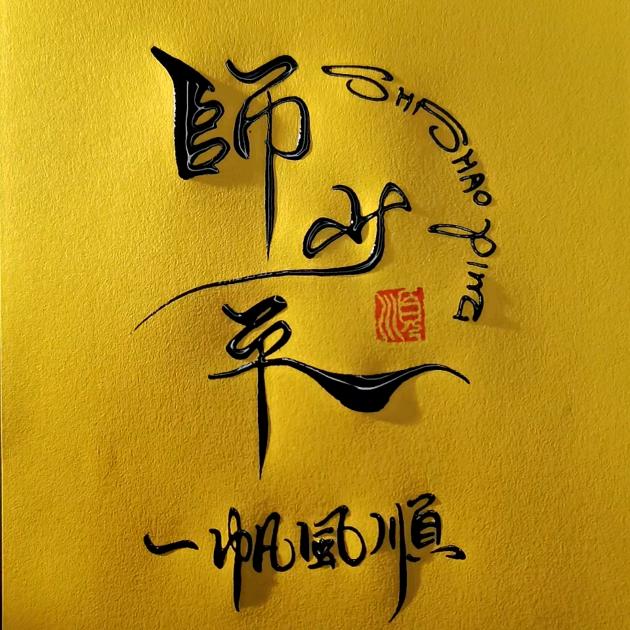 師少平
SHI SHAO PinG
順
一帆風順